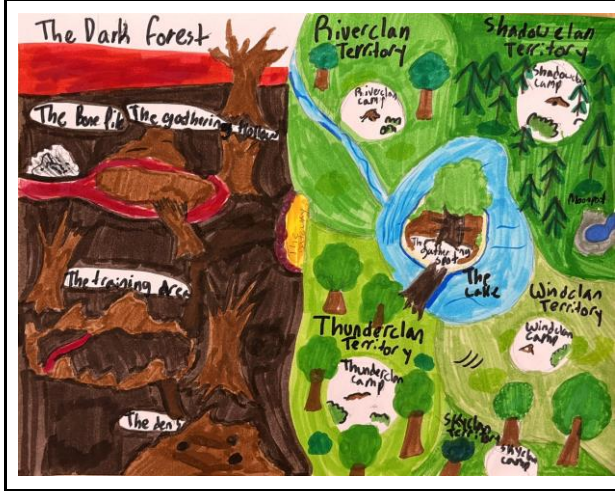 The Dark Forest
The Bone Pile
The gathering Hollow
The training Area
The dens
Riverclan
Territory
Riverclan
camp
Shadowclan
Territory
Shadowclan
camp
Moonpool
The gathering
spot
The
Lake
Thunderclan
Territory
Thunderclan
camp
Windclan
Territory
Windclan
camp
Skyclan
territory
Skyclan
camp